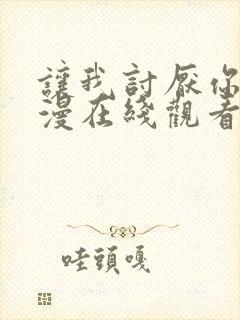 讓我討厭你
漫在綫觀看
哇頭嘎